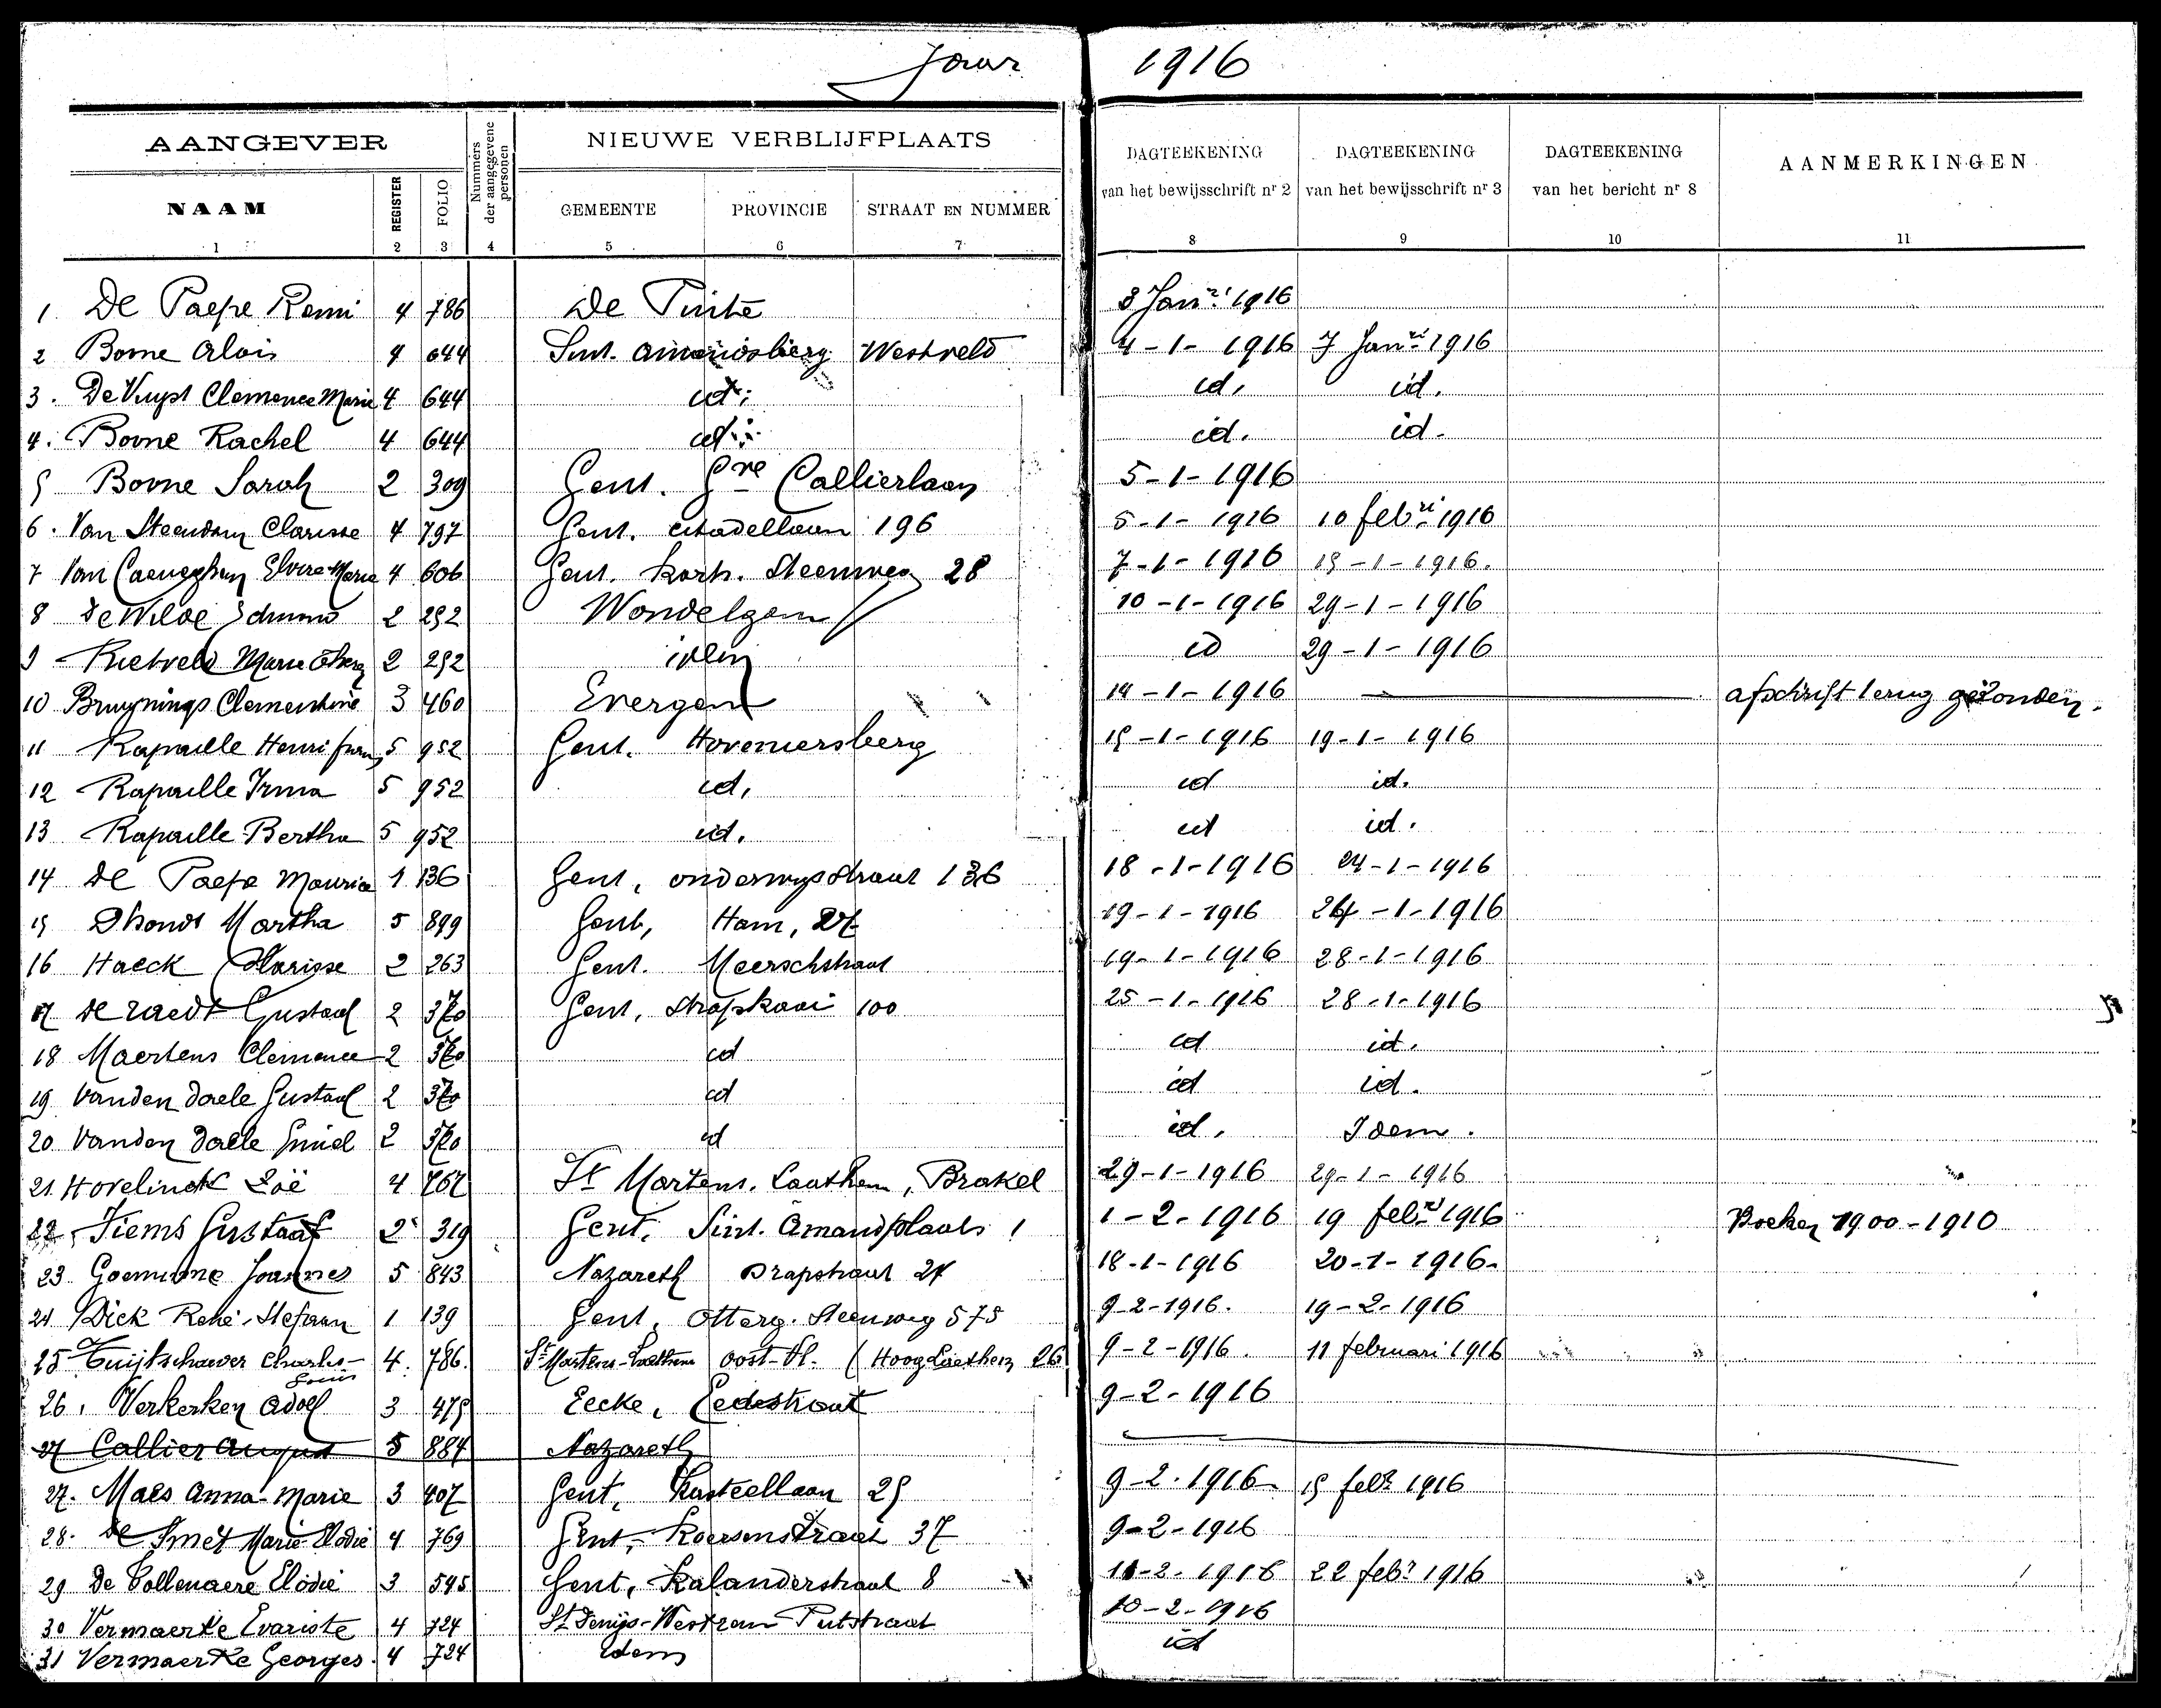 Jaar 1916
AANGEVER NIEUWE VERBLIJFPLAATS
NAAM REGISTER FOLIO Nummers der aangegevene personen GEMEENTE PROVINCIE STRAAT EN NUMMER DAGTEEKENING van het bewijsschrift nr 2 DAGTEEKENING van het bewijsschrift nr 3 DAGTEEKENING van het bericht nr 8 AANMERKINGEN
1 2 3 4 5 6 7 8 9 10 11
1. De Paepe Remi 4 786 De Pinte 3 Janri 1916
2 Borne Alois 4 644 Sint. Amandsberg Westveld 4-1-1916 7 Janri 1916
3. De Vuyst Clemence Marie 4 644 id. id. id.
4. Borne Rachel 4 644 id. id. id.
5 Borne Sarah 2 309 Gent. Gre Callierlaan 5-1-1916
6. Van Steendam Clarisse 4 797 Gent. Citadellaan 196 5-1-1916 10 febri 1916
7 Van Caeneghem Elvire-Marie 4 606 Gent. Kortr. Steenweg 28 7-1-1916 15-1-1916.
8 De Wilde Edmond 2 292 Wondelgem 10-1-1916 29-1-1916
9 Rietveld Marie 2 292 idem id 29-1-1916
10 Bruynings Clementine 3 460 Evergem 14-1-1916 afschrift terug gezonden.
11 Rapaille Henri 5 952 Gent. Hoveniersberg 15-1-1916 19-1-1916
12 Rapaille Irma 5 952 id. id id.
13 Rapaille Bertha 5 952 id. id id.
14 De Paepe Maurice 1 136 Gent, onderwysstraat 136 18-1-1916 24-1-1916
15 Dhondt Martha 5 899 Gent, Ham, 27 19-1-1916 24-1-1916
16 Haeck Clarisse 2 263 Gent. Meerschstraat 19-1-1916 28-1-1916
17 De Raedt Gustaaf 2 370 Gent, Stropkaai 100 25-1-1916 28-1-1916
18 Maertens Clemence 2 370 id id id.
19 Vanden Daele Gustaaf 2 370 id id id.
20 Vanden Daele Emiel 2 370 id id. Idem.
21. Hovelinck Zoë 4 767 St Martens. Laathem, Brakel 29-1-1916 29-1-1916
22. Tiems Gustaaf 2 319 Gent. Sint. Amandplaats 1 1-2-1916 19 febri 1916 Boeken 1900-1910
23. Goeminne Joannes 5 843 Nazareth Drapstraat 24 18-1-1916 20-1-1916.
24 Dick René Stefaan 1 139 Gent, Otterg. Steenweg 575 9-2-1916. 19-2-1916
25 Tuijtschaever Charles-Louis 4. 786. St Martens-Laethem Oost-Vl. (Hoog Laethem 26 9-2-1916. 11 februari 1916
26. Verkerken Adolf 3 475 Eecke, Eedestraat 9-2-1916
27 Callier August 5 884 Nazareth
27. Maes Anna-Marie 3 407 Gent, Kasteellaan 25 9-2-1916 15 febr 1916
28. De Smet Marie Elodie 4 769 Gent, Koersenstraat 37 9-2-1916
29 De Tollenaere Elodie 3 545 Gent, Kalanderstraat 8 11-2-1916 22 febr 1916
30 Vermaerke Evariste 4 724 St Denijs-Westrem Putstraat 10-2-1916
31 Vermaerke Georges. 4 724 idem id